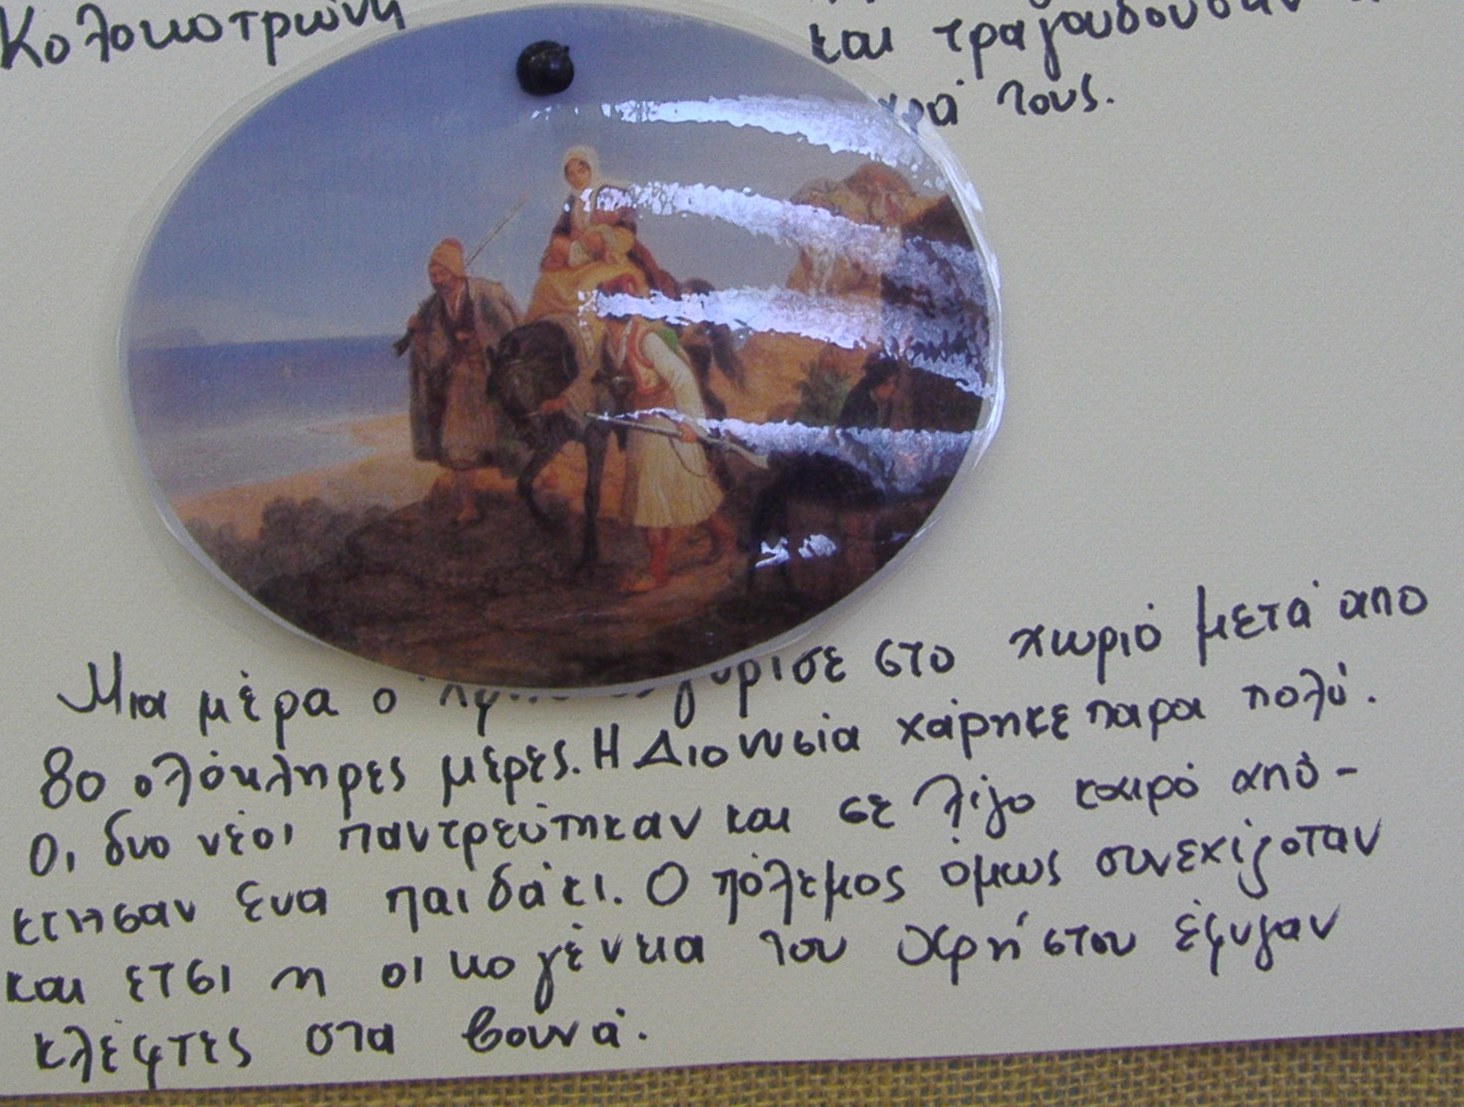 Κολοκοτρώνη
και τραγουδούσαν
τους.
Μια μέρα ο στο χωριό μετά απο
80 ολόκληρες μέρες. Η Διονυσία χάρηκε παρα πολύ.
Οι δυο νέοι παντρεύτηκαν και σε λίγο καιρό από-
κτησαν ενα παιδάκι. Ο πόλεμος όμως συνεχιζοταν
και ετσι η οικογένεια του Χρήστου έφυγαν
κλέφτες στα βουνά.